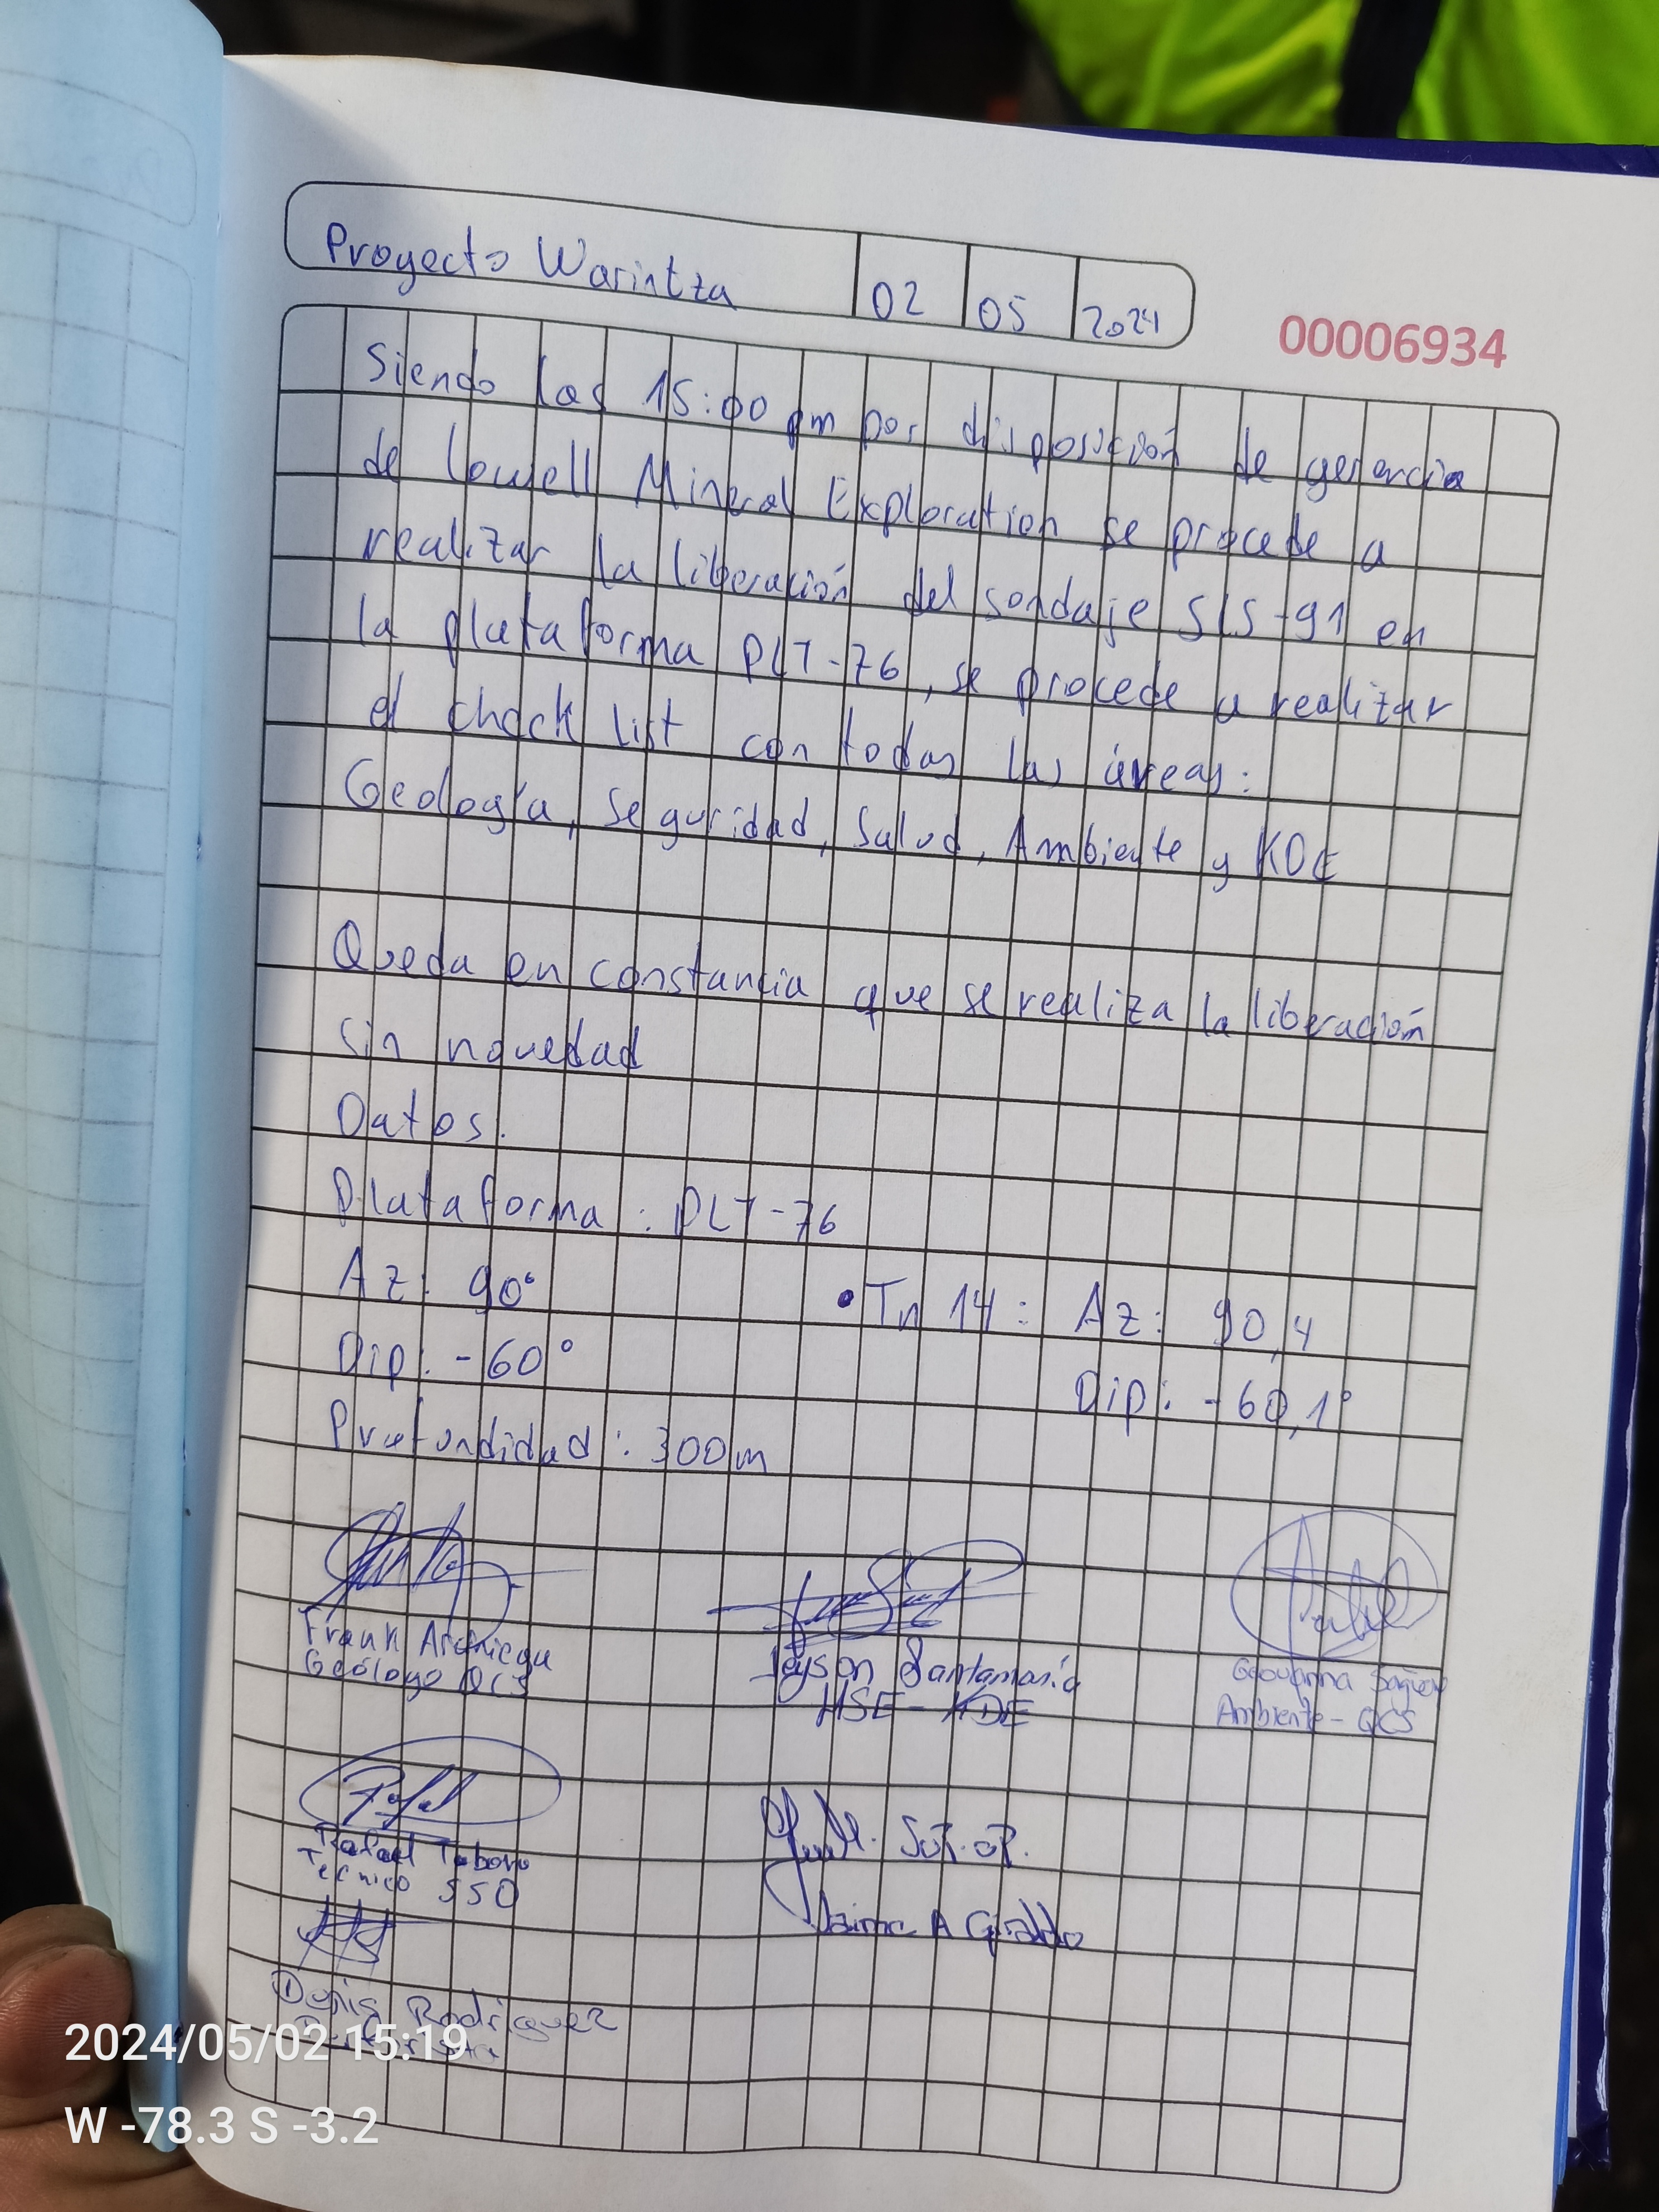 Proyecto Warintza 02 05 2024
00006934
Siendo las 15:00 pm por disposición de gerencia
de Lowell Mineral Exploration se procede a
realizar la liberación del sondaje SLS-91 en
la plataforma PLT-76, se procede a realizar
el check list con todas las áreas:
Geología, Seguridad, Salud, Ambiente y KDE
Queda en constancia que se realiza la liberación
sin novedad
Datos.
Plataforma: PLT-76
Az: 90° • Tn 14: Az: 90,4
Dip: -60° Dip: -60,1°
Profundidad: 300m
Frank Arciniega Jeyson Santamaría Geovanna
Geólogo QCS HSE-KDE Ambiente - QCS
Rafael
Técnico SSO
Jaime A Giraldo
Denis Rodriguez
2024/05/02 15:19
W -78.3 S -3.2